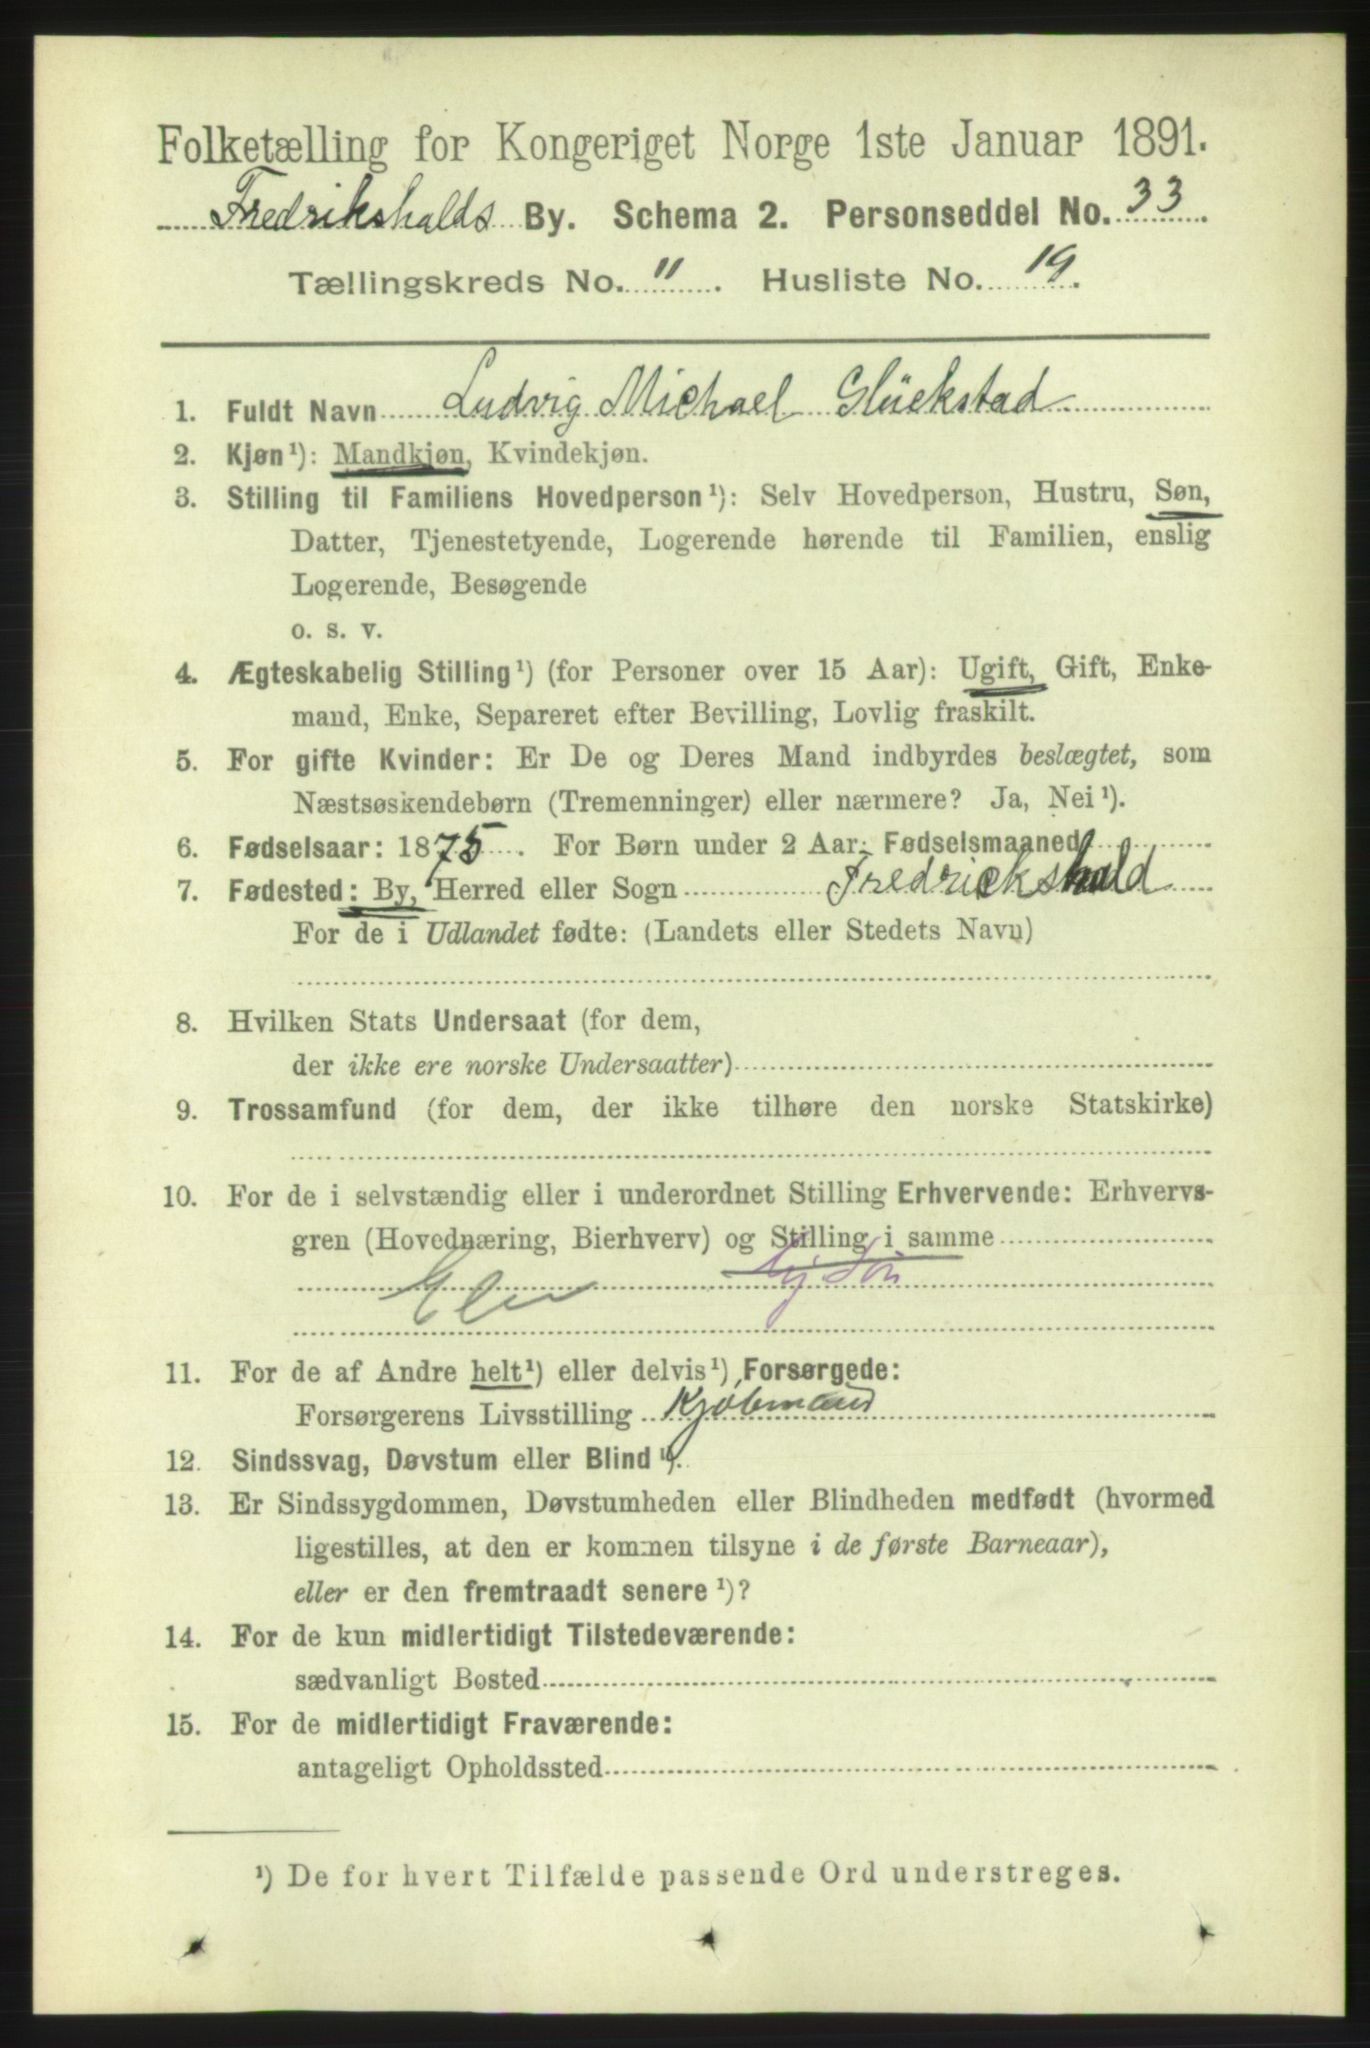 Folketælling for Kongeriget Norge 1ste Januar 1891.
Fredrikshalds By. Schema 2. Personseddel No. 33.
Tællingskreds No. 11. Husliste No. 19.
1. Fuldt Navn Ludvig Michael Glückstad
2. Kjøn¹): Mandkjøn, Kvindekjøn.
3. Stilling til Familiens Hovedperson¹): Selv Hovedperson, Hustru, Søn,
Datter, Tjenestetyende, Logerende hørende til Familien, enslig
Logerende, Besøgende
o. s. v.
4. Ægteskabelig Stilling¹) (for Personer over 15 Aar): Ugift, Gift, Enke-
mand, Enke, Separeret efter Bevilling, Lovlig fraskilt.
5. For gifte Kvinder: Er De og Deres Mand indbyrdes beslægtet, som
Næstsøskendebørn (Tremenninger) eller nærmere? Ja, Nei¹).
6. Fødselsaar: 1875. For Børn under 2 Aar: Fødselsmaaned
7. Fødested: By, Herred eller Sogn Fredrickshald
For de i Udlandet fødte: (Landets eller Stedets Navn)
8. Hvilken Stats Undersaat (for dem,
der ikke ere norske Undersaatter)
9. Trossamfund (for dem, der ikke tilhøre den norske Statskirke)
10. For de i selvstændig eller i underordnet Stilling Erhvervende: Erhvervs-
gren (Hovednæring, Bierhverv) og Stilling i samme
Elev Søn
11. For de af Andre helt¹) eller delvis¹) Forsørgede:
Forsørgerens Livsstilling Kjøbmand
12. Sindssvag, Døvstum eller Blind¹).
13. Er Sindssygdommen, Døvstumheden eller Blindheden medfødt (hvormed
ligestilles, at den er kommen tilsyne i de første Barneaar),
eller er den fremtraadt senere¹)?
14. For de kun midlertidigt Tilstedeværende:
sædvanligt Bosted
15. For de midlertidigt Fraværende:
antageligt Opholdssted
¹) De for hvert Tilfælde passende Ord understreges.